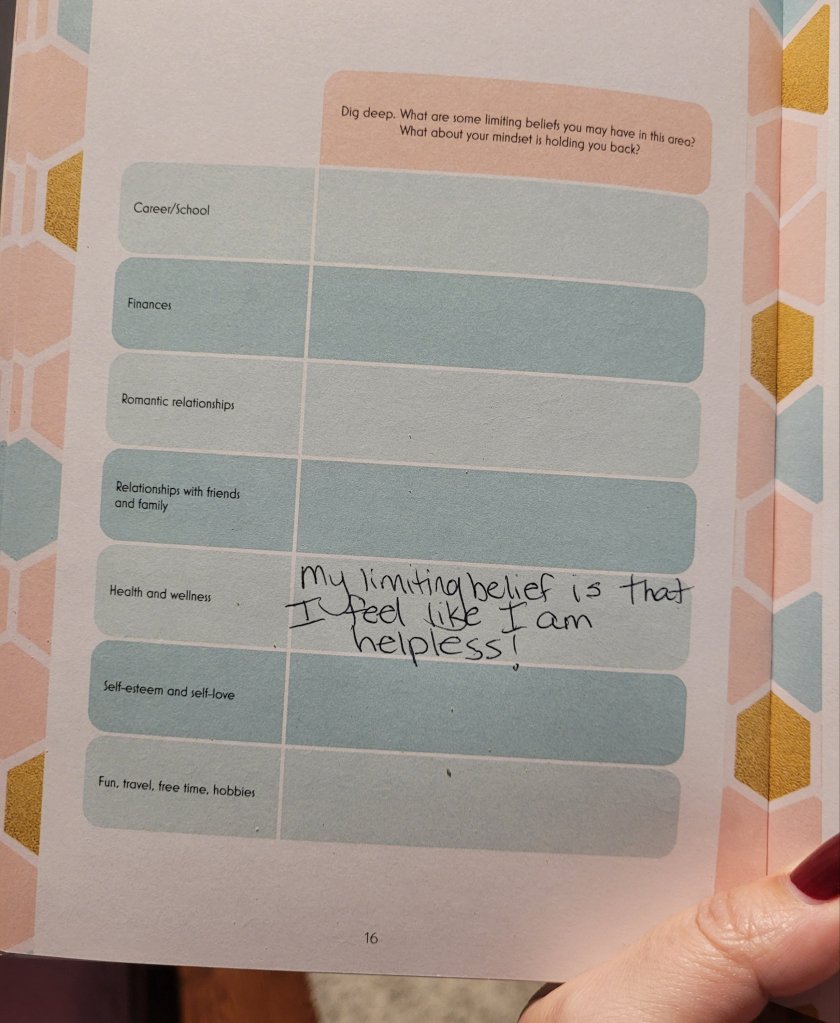 Dig deep. What are some limiting beliefs you may have in this area?
What about your mindset is holding you back?
Career/School
Finances
Romantic relationships
Relationships with friends
and family
Health and wellness
My limiting belief is that
I feel like I am
helpless!
Self-esteem and self-love
Fun, travel, free time, hobbies
16